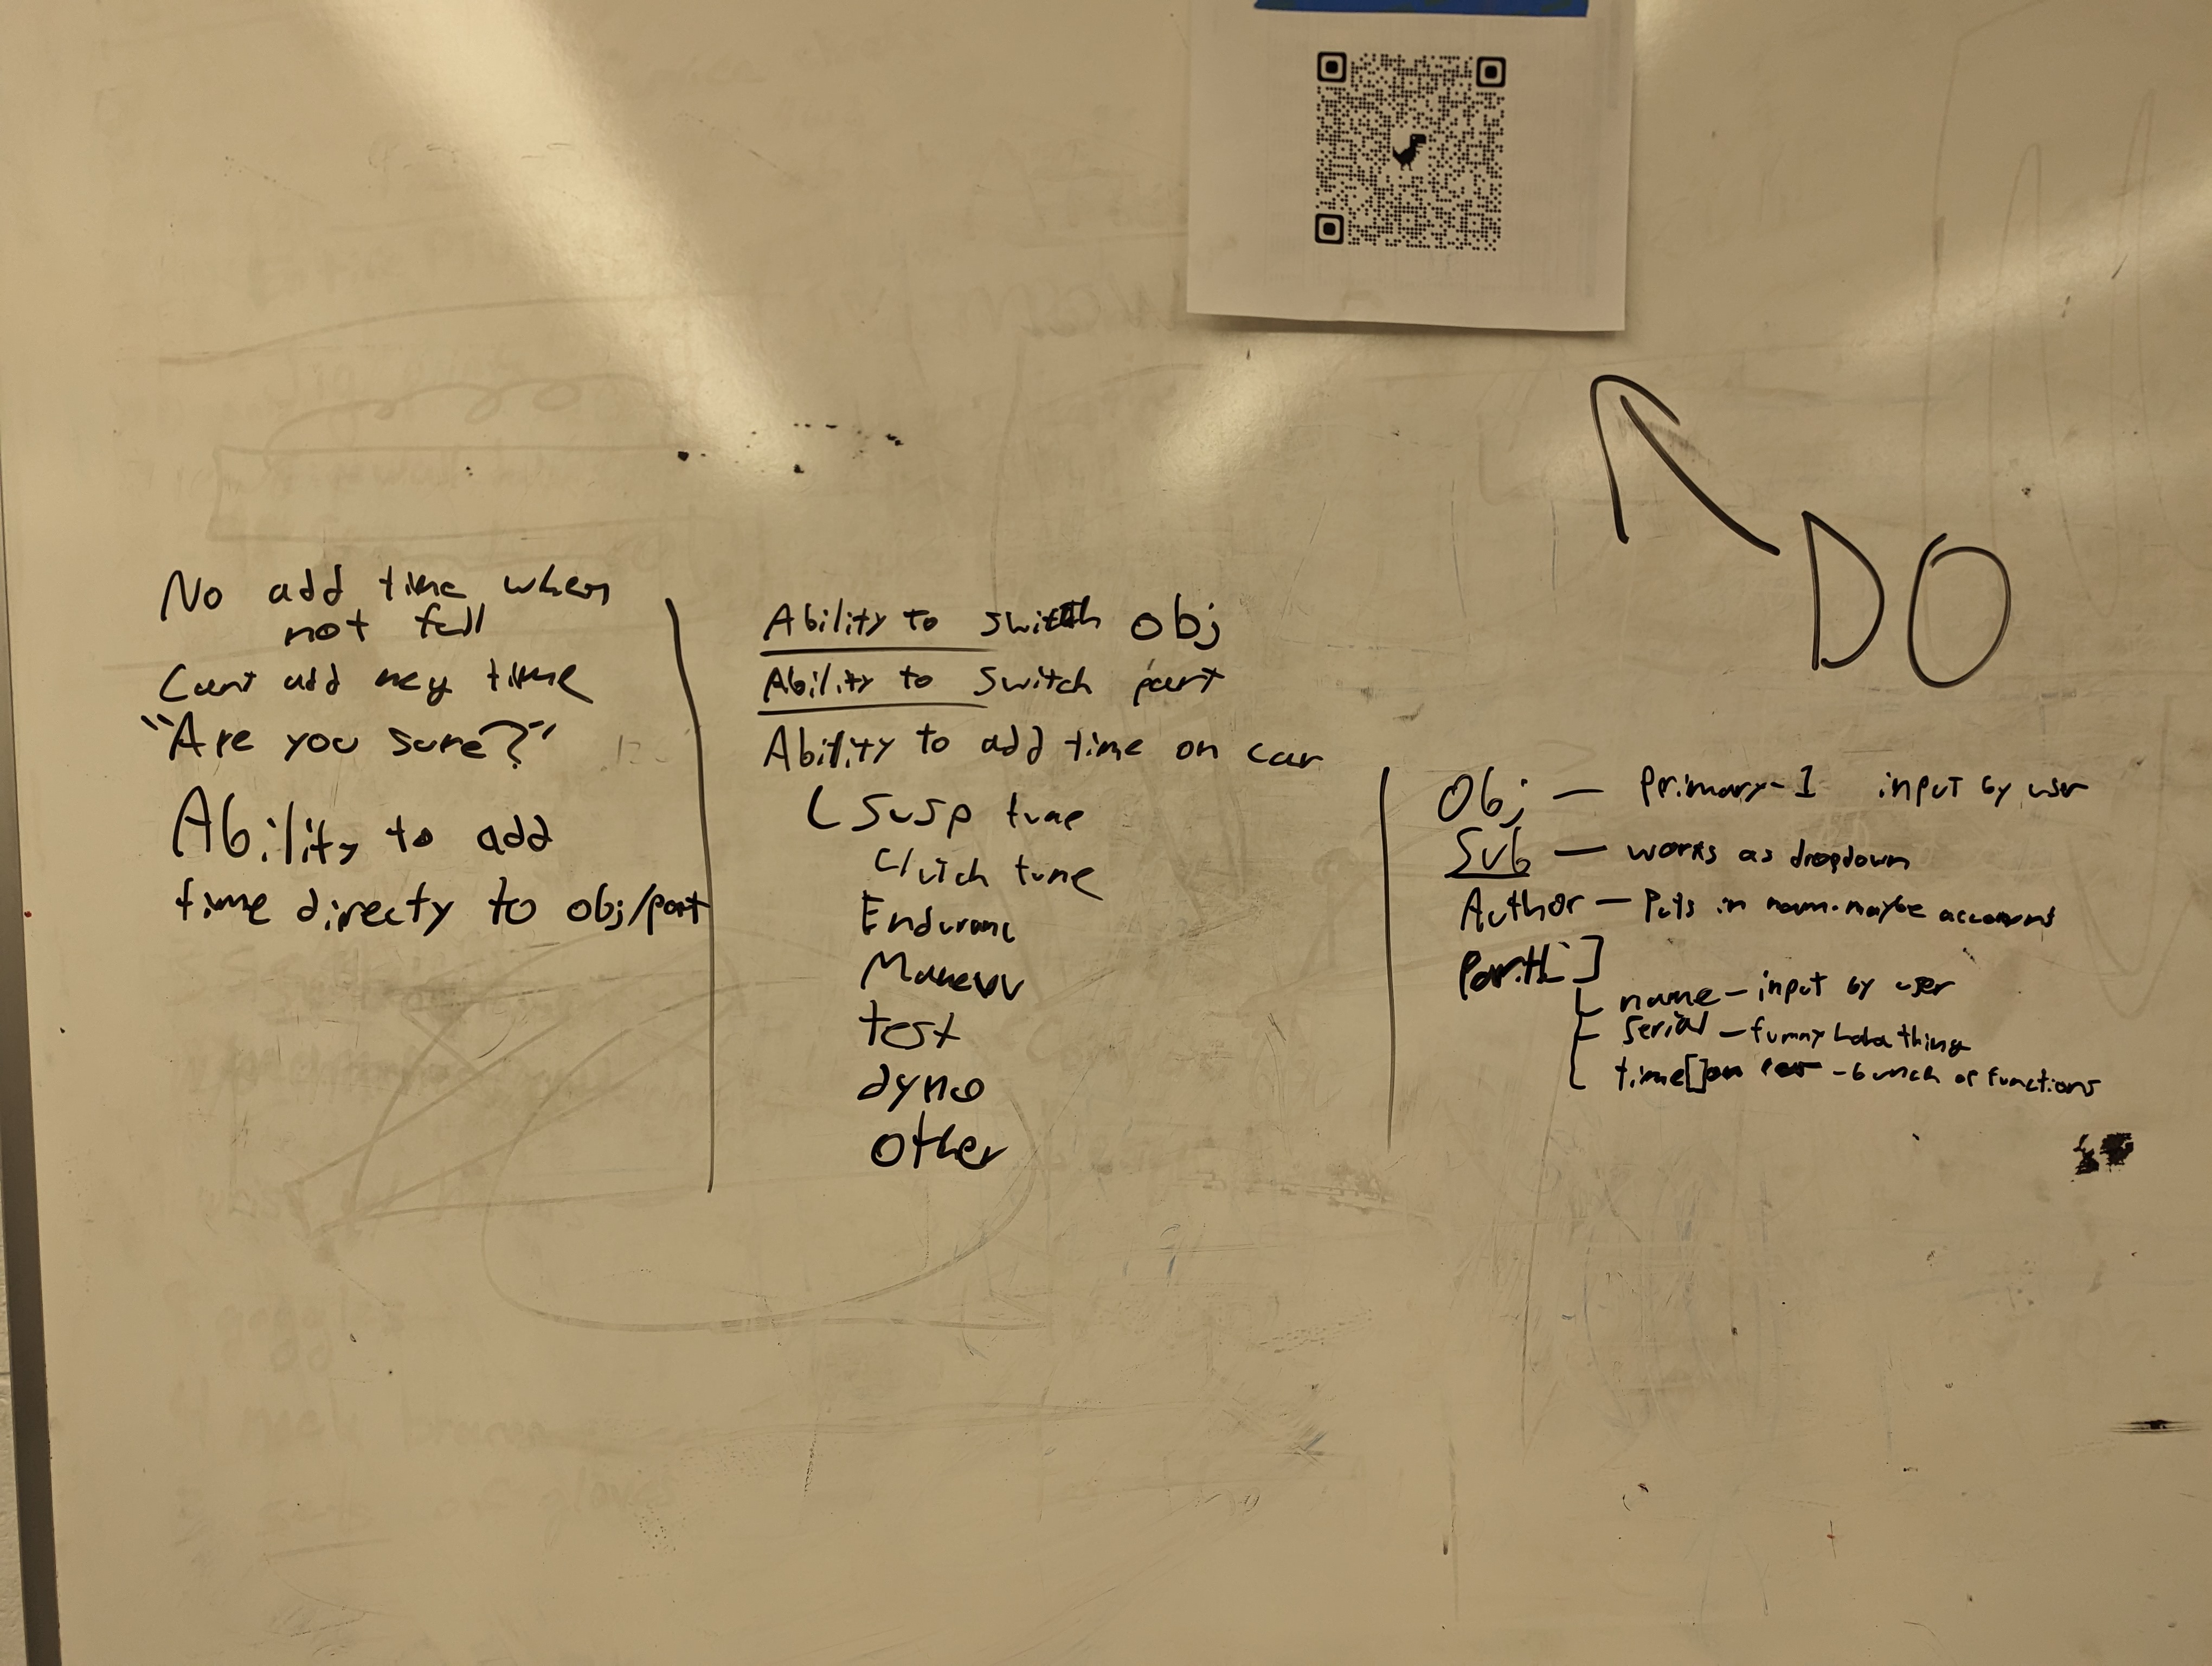 No add time when
not full
Cant add neg time
"Are you sure?"
Ability to add
time directy to obj/part
Ability to switch obj
Ability to switch part
Ability to add time on car
Susp tune
Clutch tune
Enduranc
Maneuv
test
dyno
other
DO
Obj — Primary-1 input by user
Sub — works as dropdown
Author — Puts in maybe
Part[]
name — input by user
Serial — funny haha thing
time[] - bunch of functions